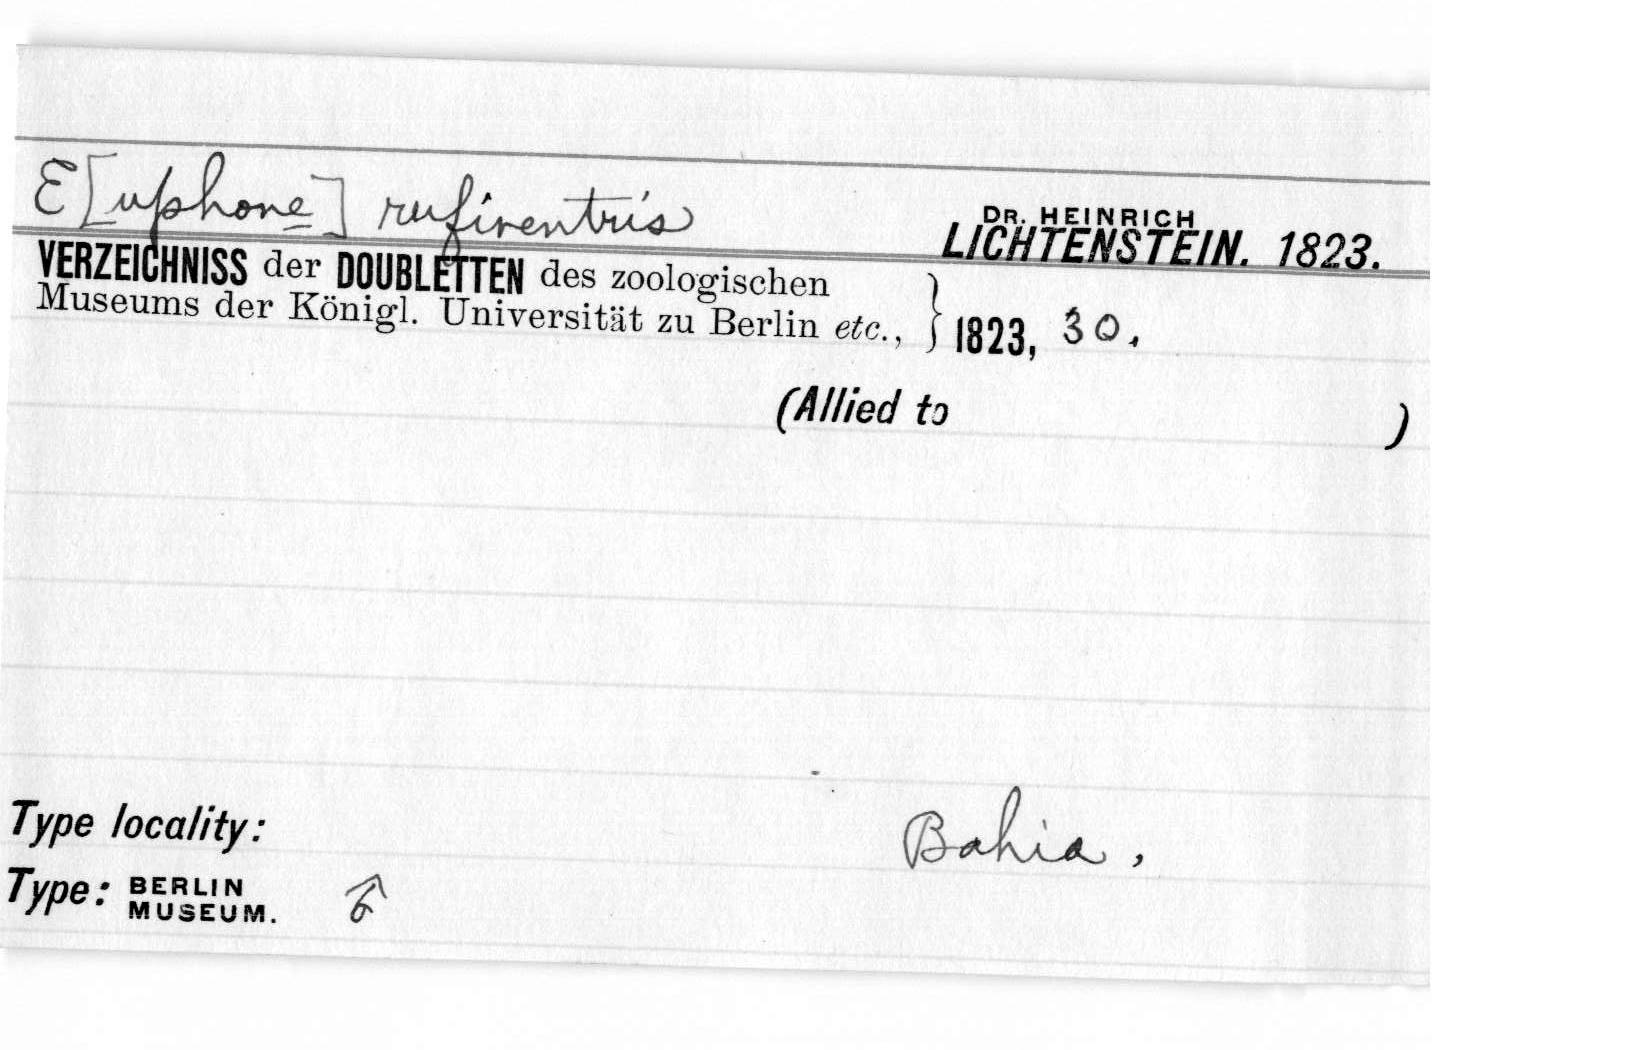 E[uphone] rufiventris
DR. HEINRICH
LICHTENSTEIN. 1823.
VERZEICHNISS der DOUBLETTEN des zoologischen
Museums der Königl. Universität zu Berlin etc., } 1823, 30.
(Allied to )
Type locality: Bahia.
Type: BERLIN MUSEUM. ♂